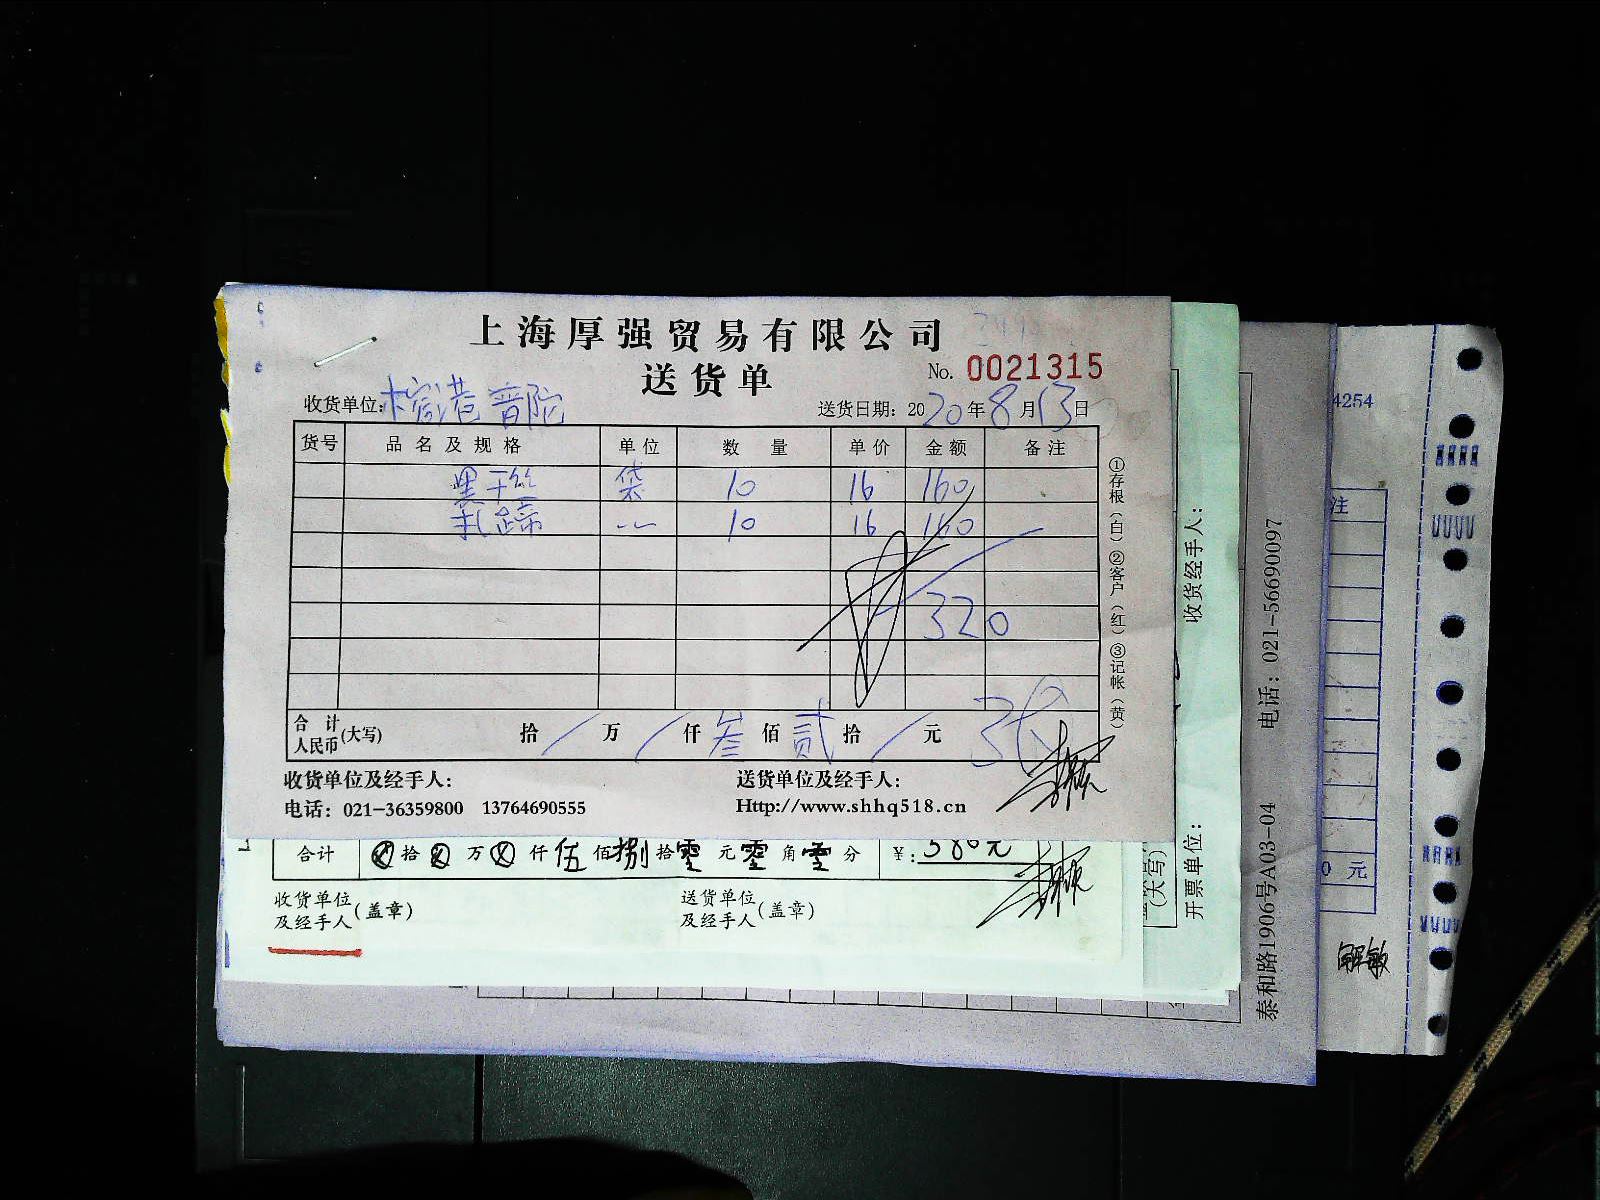 上海厚强贸易有限公司
送货单
No. 0021315
收货单位: 港 普陀
送货日期: 2020年8月13日
货号 品名及规格 单位 数量 单价 金额 备注
黑干丝 袋 10 16 160
扎蹄 〃 10 16 160
320
合计人民币(大写) 拾 / 万 / 仟 叁 佰 贰 拾 / 元
收货单位及经手人:
送货单位及经手人:
电话: 021-36359800 13764690555
Http://www.shhq518.cn
①存根(白)②客户(红)③记帐(黄)
合计 拾 万 仟 伍 佰 捌 拾 零 元 零 角 零 分 ¥: 580元
收货单位及经手人(盖章)
送货单位及经手人(盖章)
收货经手人:
开票单位:
(大写)
泰和路1906号A03-04 电话: 021-56690097
4254
注
0 元